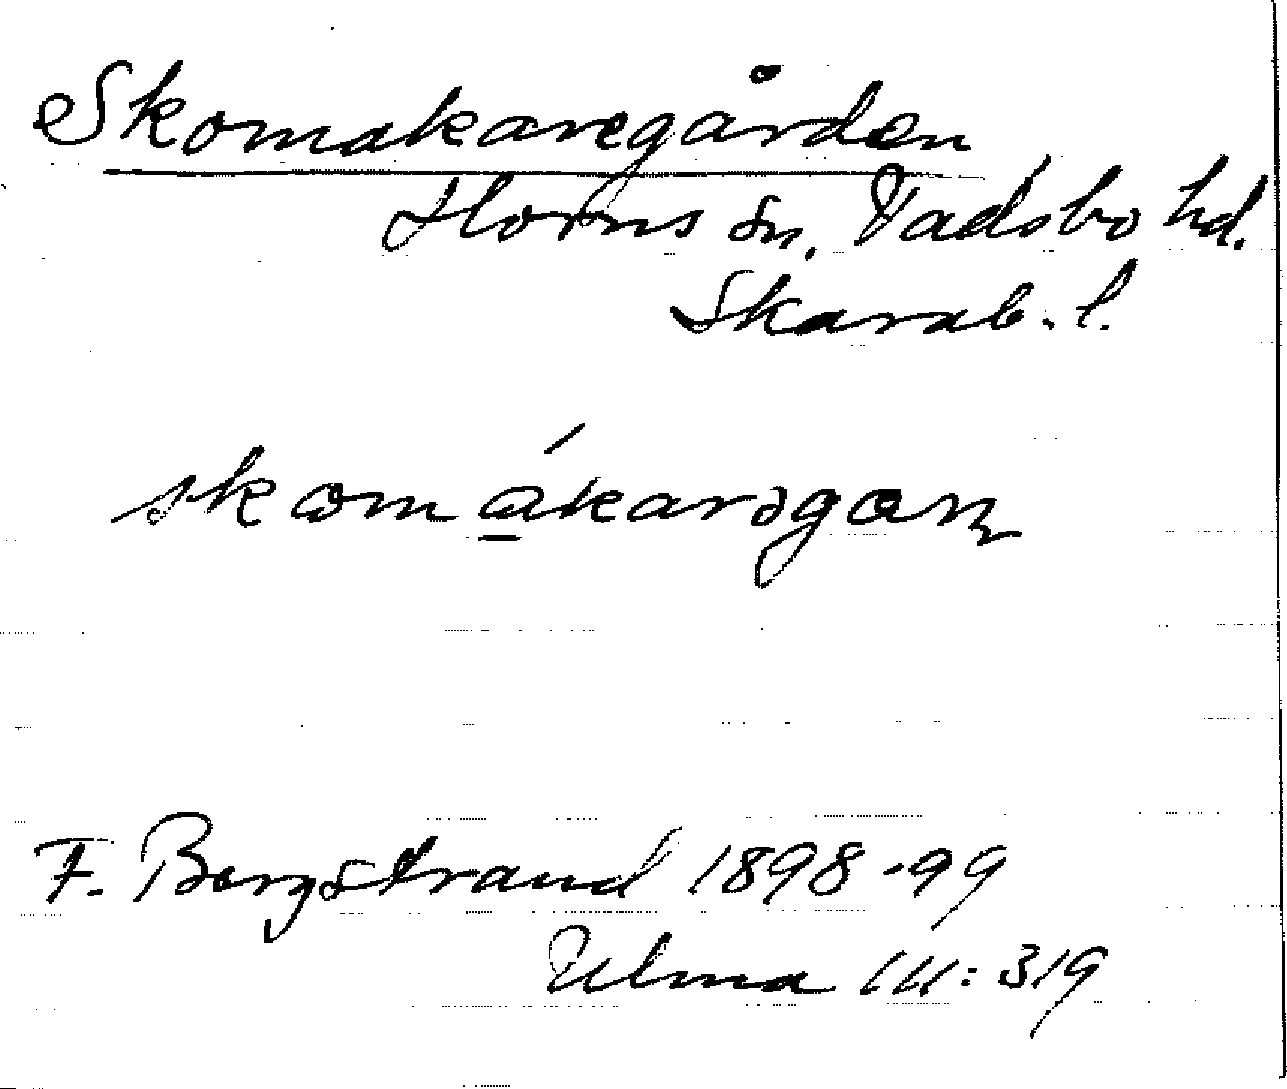 Skomakaregården
Horns sn, Vadsbo hd.
Skarab. l.
skomákarəgaɳ
F. Bergstrand 1898-99
Ulma 111:319